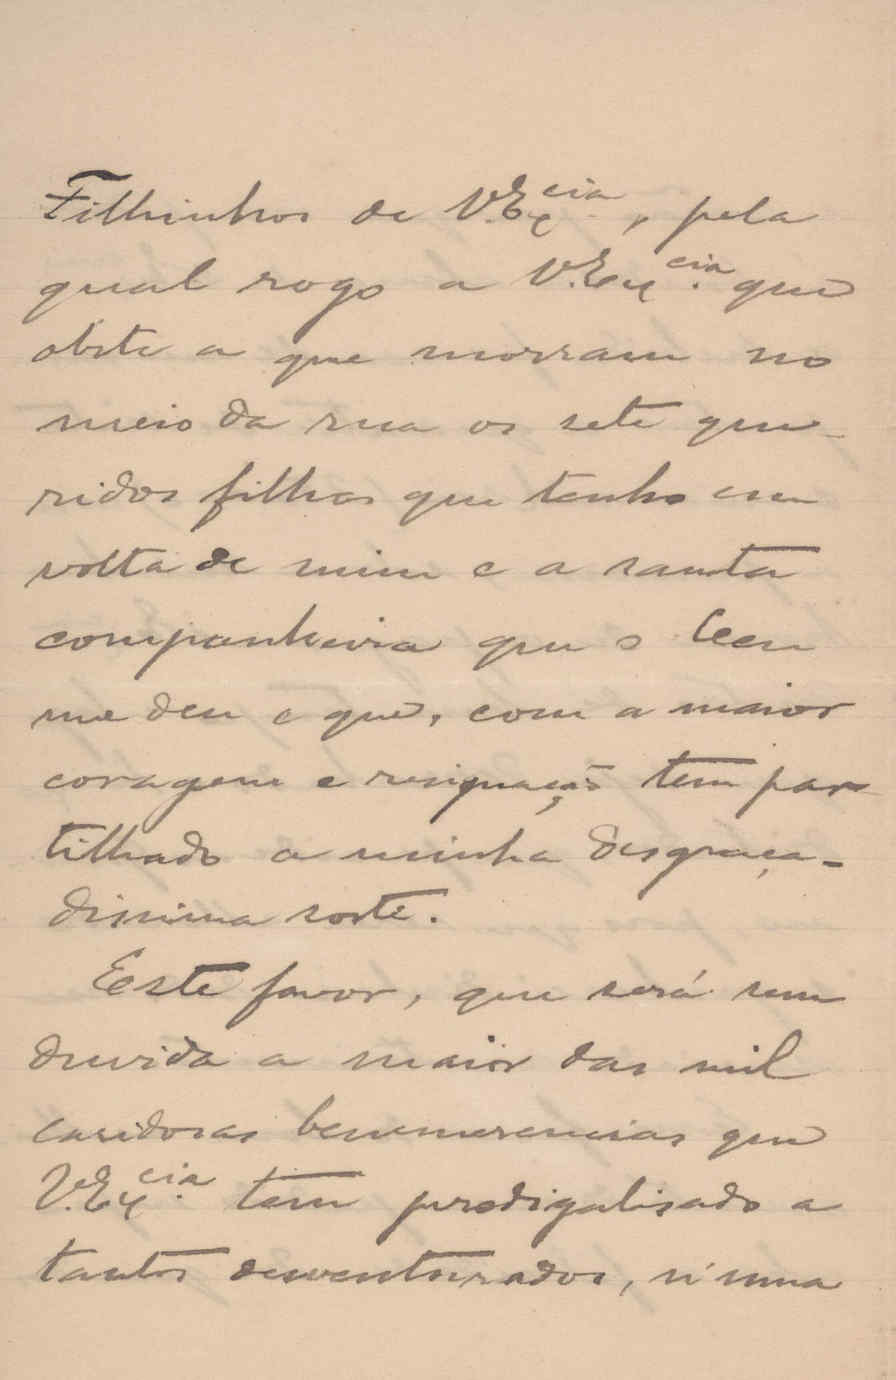 Filhinhos de V. Ex.cia, pela
qual rogo a V. Ex.cia que
obste a que morram no
meio da rua os sete que-
ridos filhos que tenho em
volta de mim e a santa
companheira que o Ceu
me deu e que, com a maior
coragem e resignação tem par-
tilhado a minha desgraça-
dissima sorte.
Este favor, que será sem
duvida a maior das mil
caridosas benemerencias que
V. Ex.cia tem prodigalisado a
tantos desventurados, n'uma